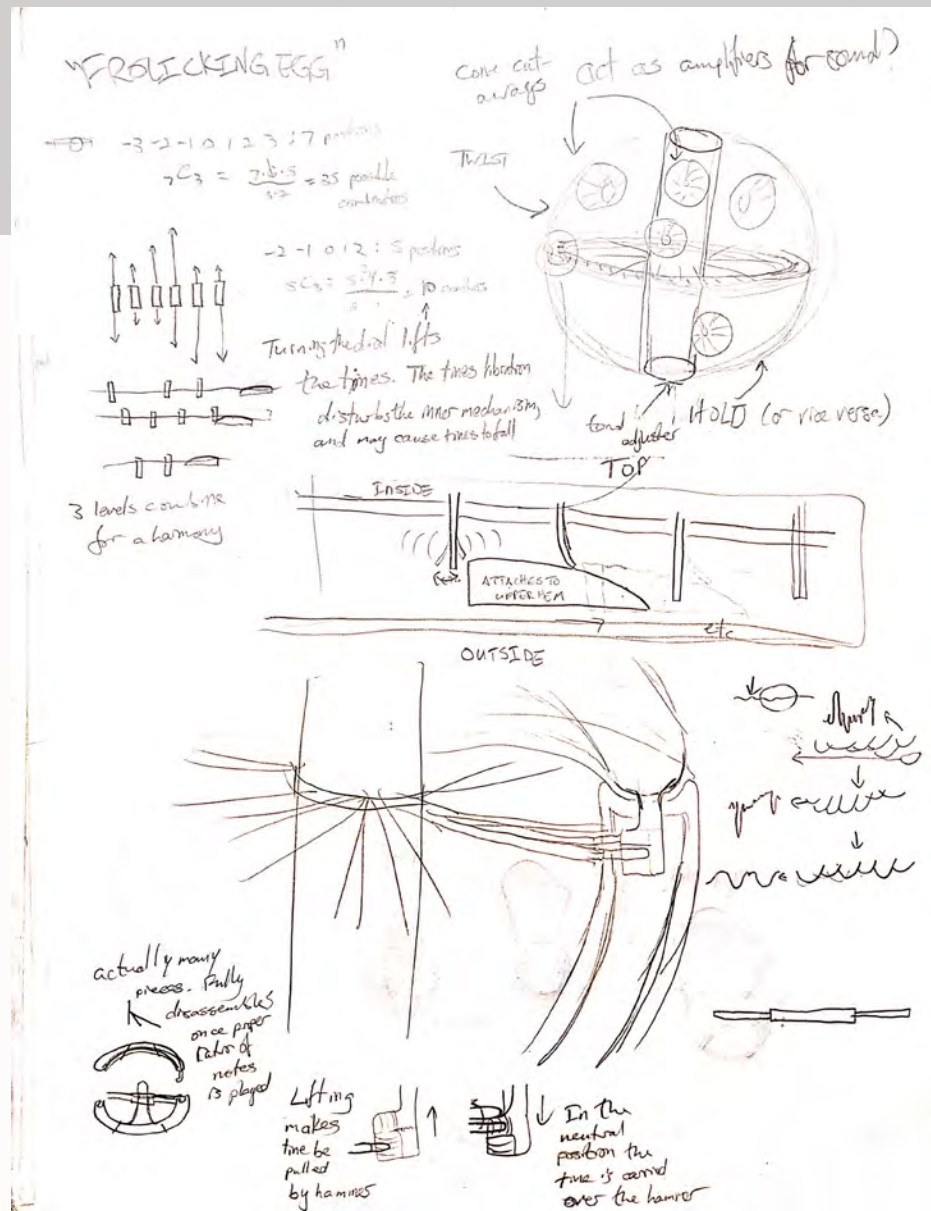 "FROLICKING EGG"
Cone cut-
aways
act as amplifiers for sound?
TWIST
-3 -2 -1 0 1 2 3 : 7 positions
7C3 = 7·6·5 = 35 possible
3·2
combinations
-2 -1 0 1 2 : 5 positions
5C3 =
10
Turning the dial lifts
the tines. The tines vibration
disturbs the inner mechanism,
and may cause tines to fall
HOLD (or vice versa)
adjuster
TOP
3 levels combine
for a harmony
INSIDE
ATTACHES TO
UPPER HEM
etc
OUTSIDE
actually many
pieces. Fully
disassembles
once proper
of
notes
is played
Lifting
makes
tine be
pulled
by hammer
In the
neutral
position the
tine is carried
over the hammer